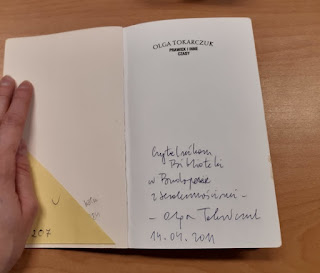 OLGA TOKARCZUK
PRAWIEK I INNE
CZASY
Czytelnikom
Biblioteki
w Budapeszcie
z serdecznościami -
- Olga Tokarczuk
14.04.2011
207